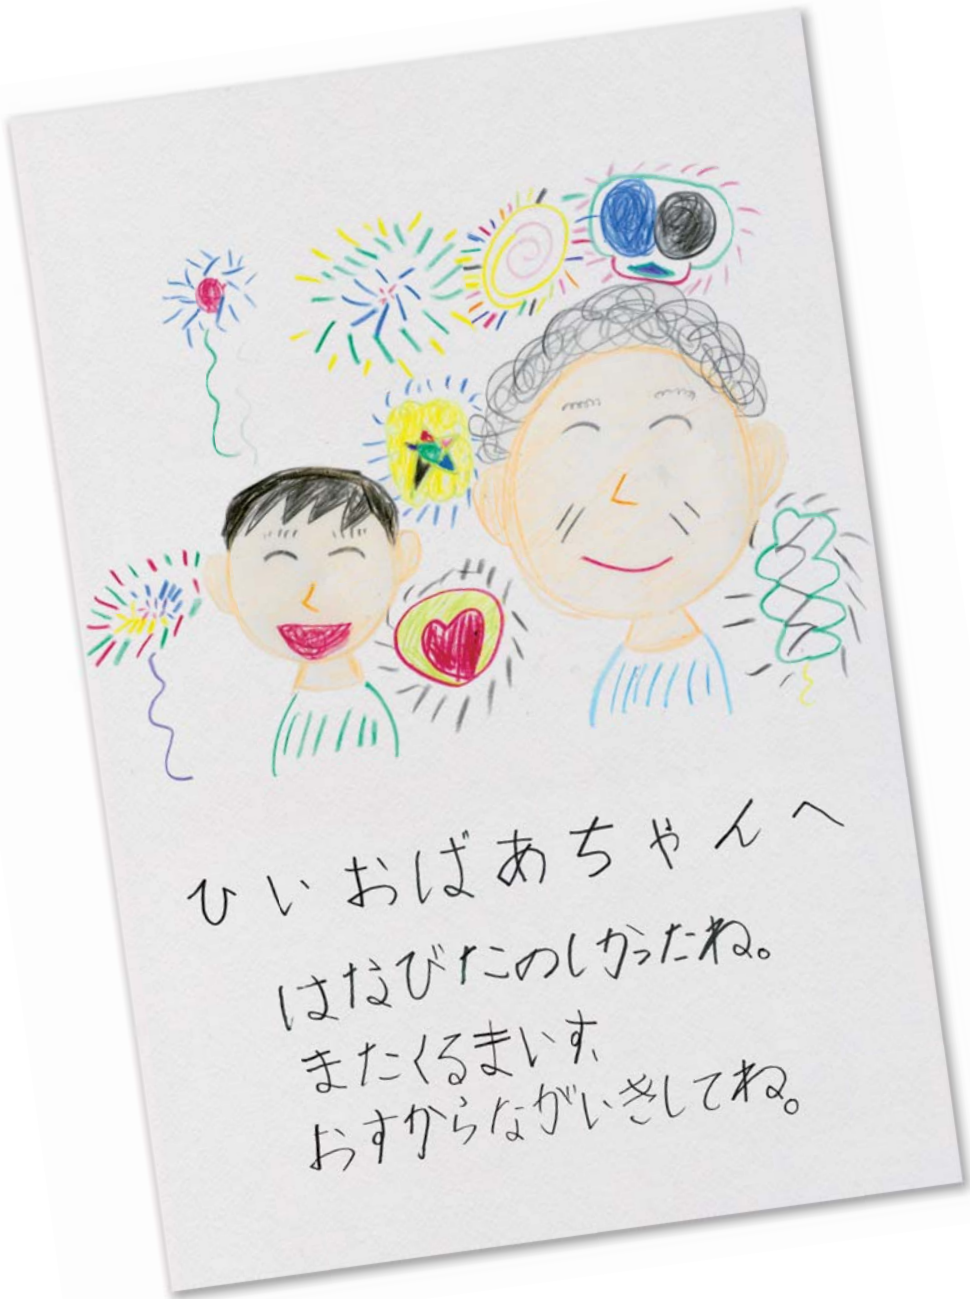 ひいおばあちゃんへ
はなびたのしかったね。
またくるまいす、
おすからながいきしてね。